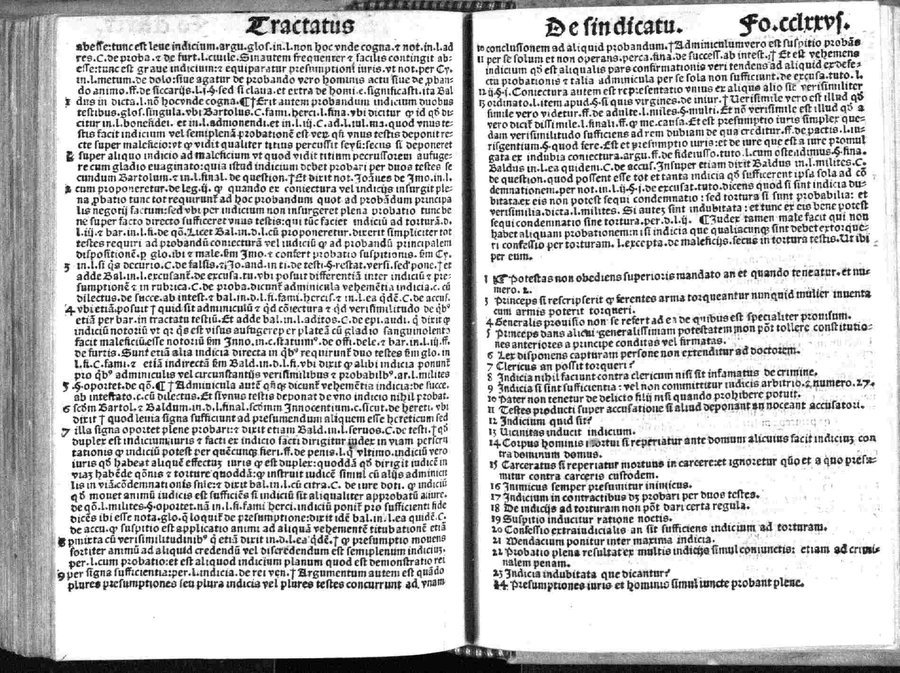 Tractatus
abesse: tunc est leue indicium. argu. glos. in. l. non hoc vnde cogna. ⁊ not. in. l. ad
res. C. de proba. ⁊ de furt. l. ciuile. Sin autem frequenter ⁊ facilis contingit ab-
esse: tunc est graue indicium: ⁊ equiparatur presumptioni iuris. vt not. per Cy.
in. l. metum. de dolo: siue agatur de probando vero hominis actu siue de pban-
do animo. ff. de siccarijs. l. j. §. sed si claua. et extra de homi. c. significasti. ita Bal
1 dus in dicta. l. nō hoc vnde cogna. ¶ † Erit autem probandum indicium duobus
testibus. glos. singula. vbi Bartolus. C. fami. herci. l. fina. vbi dicitur ꝙ id qd̄ di
citur in. l. bone fidei. et in. l. admonendi. et in. l. iij. C. ad. l. iul. ma. quod vnus te-
stis facit indicium vel semiplenā probationē est
ste super maleficio: vt ꝙ vidit qualiter titius percussit seyū: secus si deponeret
2 super aliquo indicio ad maleficium vt quod vidit titium percussorem aufuge-
re cum gladio euaginato: quia istud indicium debet probari per duos testes se
cundum Bartolum. ⁊ in. l. final. de question. † Et dixit not. Joānes de Imo. in. l.
cum proponeretur. de leg. ij. ꝙ quando ex coniectura vel indicijs insurgit ple-
na pbatio tunc tot requirunt̄ ad hoc probandum quot ad probandum principa
lis negotij factum: sed vbi per indicium non insurgeret plena probatio tunc be
ne super facto directo sufficeret vnus testis: qui tūc faciet indiciū ad torturā. d.
l. iij. ⁊ bar. in. l. fi. de qō. Licet Bal. in. d. l. cū proponeretur. dixerit simpliciter tot
testes requiri ad probandū coniecturā vel indiciū ꝙ ad probandū principalem
dispositionē. p glo. ibi ⁊ male. fm Imo. ⁊ confert probatio suspitionis. fm Cy.
3 in. l. si qs decurio. C. de falsis. ⁊ Jo. and. in ti. de testi. §. restat. versi. sed ponc. † et
dd. Bal. in. l. excusant̄. de excusa. tu. vbi posuit differentiā inter indiciū ⁊ pre-
sumptionē ⁊ in rubrica. C. de proba. dicunt̄ adminicula vehemētia indicia. c. cū
dilectus. de succe. ab intest. ⁊ bal. in. d. l. fi. fami. hercis. ⁊ in. l. ea qdē. C. de accus.
4 vbi etiā. posuit † quid sit adminiculū ⁊ qd̄ cōiectura ⁊ qd̄ verisimilitudo de qb'
etiā per bar. in tractatu testiū. Et adde bal. in. l. aditos. C. de epi. audi. ꝙ dixit ꝙ
indiciū notoriū vt qs est visus aufugere per plateā cū gladio sanguinolento
facit maleficiū. esse notoriū fm Inno. in. c. statuim'. de offi. dele. ⁊ bar. in. l. iij. ff.
de furtis. Sunt etiā alia indicia directa in qb' requirunt̄ duo testes fm glo. in
l. fi. C. fami. ⁊ etiā indirectā fm Bald. in. d. l. fi. vbi dixit ꝙ alibi indicia ponunt̄
pro qb' adminiculis vel circumstantijs verisimilibus ⁊ probabilib'. ar. l. milites
5 §. oportet. de qō. ¶ † Adminicula autē qn̄qz dicunt̄ vehementia indicia: de succe.
ab intestato. c. cū dilectus. Et si vnus testis deponat de vno indicio nihil probat.
6 scdm Bartol. ⁊ Baldum. in. d. l. final. scdmm Innocentium. c. sicut. de hereti. vbi
dixit † quod leuia signa sufficiunt ad probandum aliquem esse hereticum sed
7 illa signa oportet plene probari: ⁊ dixit etiam Bald. in. l. seruos. C. de test. † qd̄
duplex est indicium: iuris ⁊ facti ex indicio facti dirigitur iudex in viam perscru
tationis ꝙ indiciū potest per quēcunqz fieri. ff. de penis. l. qd̄ vltimo. indiciū vero
iuris qd̄ habeat aliquē effectuz iuris ꝙ est duplex: quoddā qd̄ dirigit iudicē in
viaz habēde qōnis ⁊ torture quoddā: ꝙ instruit iudicē simul cū alijs adminicu
lis in viā cōdemnatiōis simz ⁊ dixit bal. in. l. cū citra. C. de iure doti. ꝙ indiciū
qd̄ mouet animū iudicis est sufficiēs si indiciū sit aliqualiter approbatū a iure.
de qō. l. milites. §. oportet. nā in. l. fi. fami herci. indiciū ponit̄ pro sufficienti fide
dicēs ibi esse nota. glo. qd̄ loquit̄ de presumptione: dixit idē bal. in. l. ea quidē. C.
de accu. ꝙ suspitio est applicatio animi ad aliquā vehementē titubationē etiā
8 pmixta cū verisimilitudinib' qd̄ etiā dixit in. d. l. ea qdē. † ꝙ presumptio mouens
fortiter animū ad aliquid credendū vel discredendum est semiplenum indiciuz.
per. l. cum probatio: et est aliquod indicium planum quod est demonstratio rei
9 per signa sufficientia: per. l. indicia. de rei ven. † Argumentum autem est quādo
plures presumptiones seu plura indicia vel plures testes concurrunt ad vnam
De sindicatu. Fo. cclxxvj.
10 conclusionem ad aliquid probandum. † Adminiculum vero est suspitio probās
11 per se solum et non operans. per ca. fina. de success. ab intest. † Et est vehemens
indicium qd̄ est aliqualis pars confirmationis veri tendens ad aliquid ex defe-
ctu probationis ⁊ talia adminicula per se sola non sufficiunt. de excusa. tuto. l.
12 ij. §. j. Coniectura autem est representatio vnius ex alijs alio sibi verisimiliter
13 ordinato. l. item apud. §. si quis virgines. de iniur. † Verisimile vero est illud qd̄
simile vero videtur. ff. de adulte. l. miles. §. mulri. Et nō verisimile est illud qd̄ a
vero dicit dissimile. l. finali. ff. ꝙ me. causa. Et est presumptio iuris simplex que-
dam verisimilitudo sufficiens ad rem dubiam de qua creditur. ff. de pactis. l. iu-
risgentium. §. quod fere. Est et presumptio iuris: et de iure que est a iure promul
gata ex indubia coniectura. argu. ff. de fideiusso. tuto. l. cum ostendimus. §. fina.
Baldus in. l. ea quidem. C. de accus. Insuper etiam dixit Baldus in. l. milites. C.
de question. quod possent esse tot et tanta indicia qd̄ sufficerent ipsa sola ad cō
demnationem. per not. in. l. ij. §. j. de excusat. tuto. dicens quod si sint indicia du-
bitata. ex eis non potest sequi condemnatio: sed tortura si sunt probabilia: et
versimilia. dicta. l. milites. Si autez sint indubitata: et tunc ex eis bene potest
sequi condemnatio sine tortura. per. d. l. ij. ¶ Judex tamen male facit qui non
habet aliquam probationem: in ijs indicia que qualiacunqz sint debet extorque-
ri confessio per torturam. l. excepta. de maleficijs. secus in tortura testis. Vt ibi
per eum.
1 ¶ Potestas non obediens superioris mandato an et quando teneatur. et nu-
mero. 2.
3 Princeps si rescripserit ꝙ ferentes arma torqueantur nunquid mulier inuenta
cum armis poterit torqueri.
4 Generalis prouisio non se refert ad ea de quibus est specialiter prouisum.
5 Princeps dans alicui generalissimam potestatem non pōt tollere constitutio-
nes anteriores a principe conditas vel firmatas.
6 Lex disponens capturam persone non extenditur ad doctorem.
7 Clericus an possit torqueri?
8 Indicia nihil faciunt contra clericum nisi sit infamatus de crimine.
9 Indicia si sint sufficientia: vel non committitur iudicis arbitrio. ⁊ numero. 27.
10 Pater non tenetur de delicto filij nisi quando prohibere potuit.
11 Testes producti super accusatione si aliud deponant an noceant accusatori.
12 Indicium quid sit?
13 Vicinitas inducit indicium.
14 Corpus hominis mortui si reperiatur ante domum alicuius facit indiciuz con
tra dominum domus.
15 Carceratus si reperiatur mortuus in carcere: et ignoretur quō et a quo presu-
mitur contra carceris custodem.
16 Inimicus semper presumitur inimicus.
17 Indicium in contractibus dz probari per duos testes.
18 De indicijs ad torturam non pōt dari certa regula.
19 Suspitio inducitur ratione noctis.
20 Confessio extraiudicialis an sit sufficiens indicium ad torturam.
21 Mendacium ponitur inter maxima indicia.
22 Probatio plena resultat ex multis indicijs simul coniunctis: etiam ad crimi-
nalem penam.
23 Indicia indubitata que dicantur?
24 Presumptiones iuris et hominis simul iuncte probant plene.